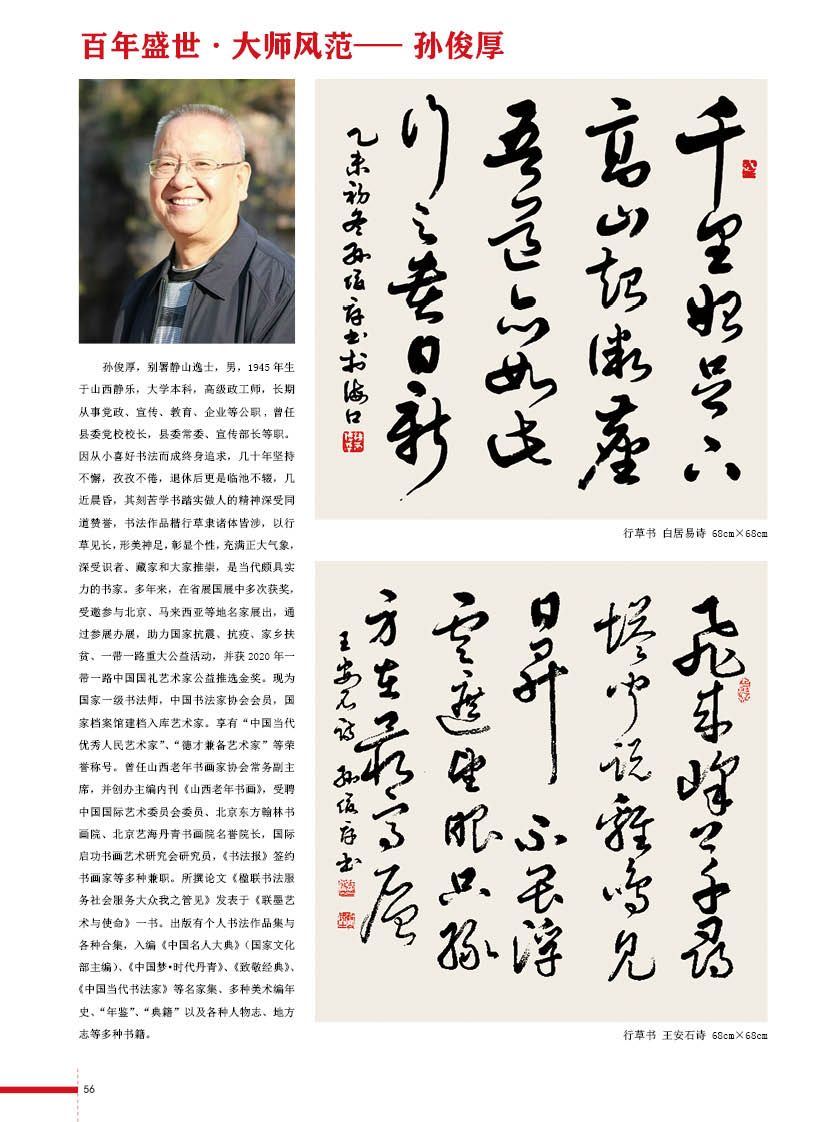 百年盛世·大师风范—— 孙俊厚
孙俊厚，别署静山逸士，男，1945 年生
于山西静乐，大学本科，高级政工师，长期
从事党政、宣传、教育、企业等公职，曾任
县委党校校长，县委常委、宣传部长等职。
因从小喜好书法而成终身追求，几十年坚持
不懈，孜孜不倦，退休后更是临池不辍，几
近晨昏，其刻苦学书踏实做人的精神深受同
道赞誉，书法作品楷行草隶诸体皆涉，以行
草见长，形美神足，彰显个性，充满正大气象，
深受识者、藏家和大家推崇，是当代颇具实
力的书家。多年来，在省展国展中多次获奖，
受邀参与北京、马来西亚等地名家展出，通
过参展办展，助力国家抗震、抗疫、家乡扶
贫、一带一路重大公益活动，并获 2020 年一
带一路中国国礼艺术家公益推选金奖。现为
国家一级书法师，中国书法家协会会员，国
家档案馆建档入库艺术家。享有“中国当代
优秀人民艺术家”、“德才兼备艺术家”等荣
誉称号。曾任山西老年书画家协会常务副主
席，并创办主编内刊《山西老年书画》，受聘
中国国际艺术委员会委员、北京东方翰林书
画院、北京艺海丹青书画院名誉院长，国际
启功书画艺术研究会研究员，《书法报》签约
书画家等多种兼职。所撰论文《楹联书法服
务社会服务大众我之管见》发表于《联墨艺
术与使命》一书。出版有个人书法作品集与
各种合集，入编《中国名人大典》（国家文化
部主编）、《中国梦·时代丹青》、《致敬经典》、
《中国当代书法家》等名家集、多种美术编年
史、“年鉴”、“典籍”以及各种人物志、地方
志等多种书籍。
千里始足下
高山起微塵
吾道亦如此
行之貴日新
乙未初冬孙俊厚书於海口
行草书 白居易诗 68cm×68cm
飛來峰上千尋
塔聞説雞鳴見
日昇不畏浮
雲遮望眼只緣
身在最高層
王安石詩 孙俊厚书
行草书 王安石诗 68cm×68cm
56